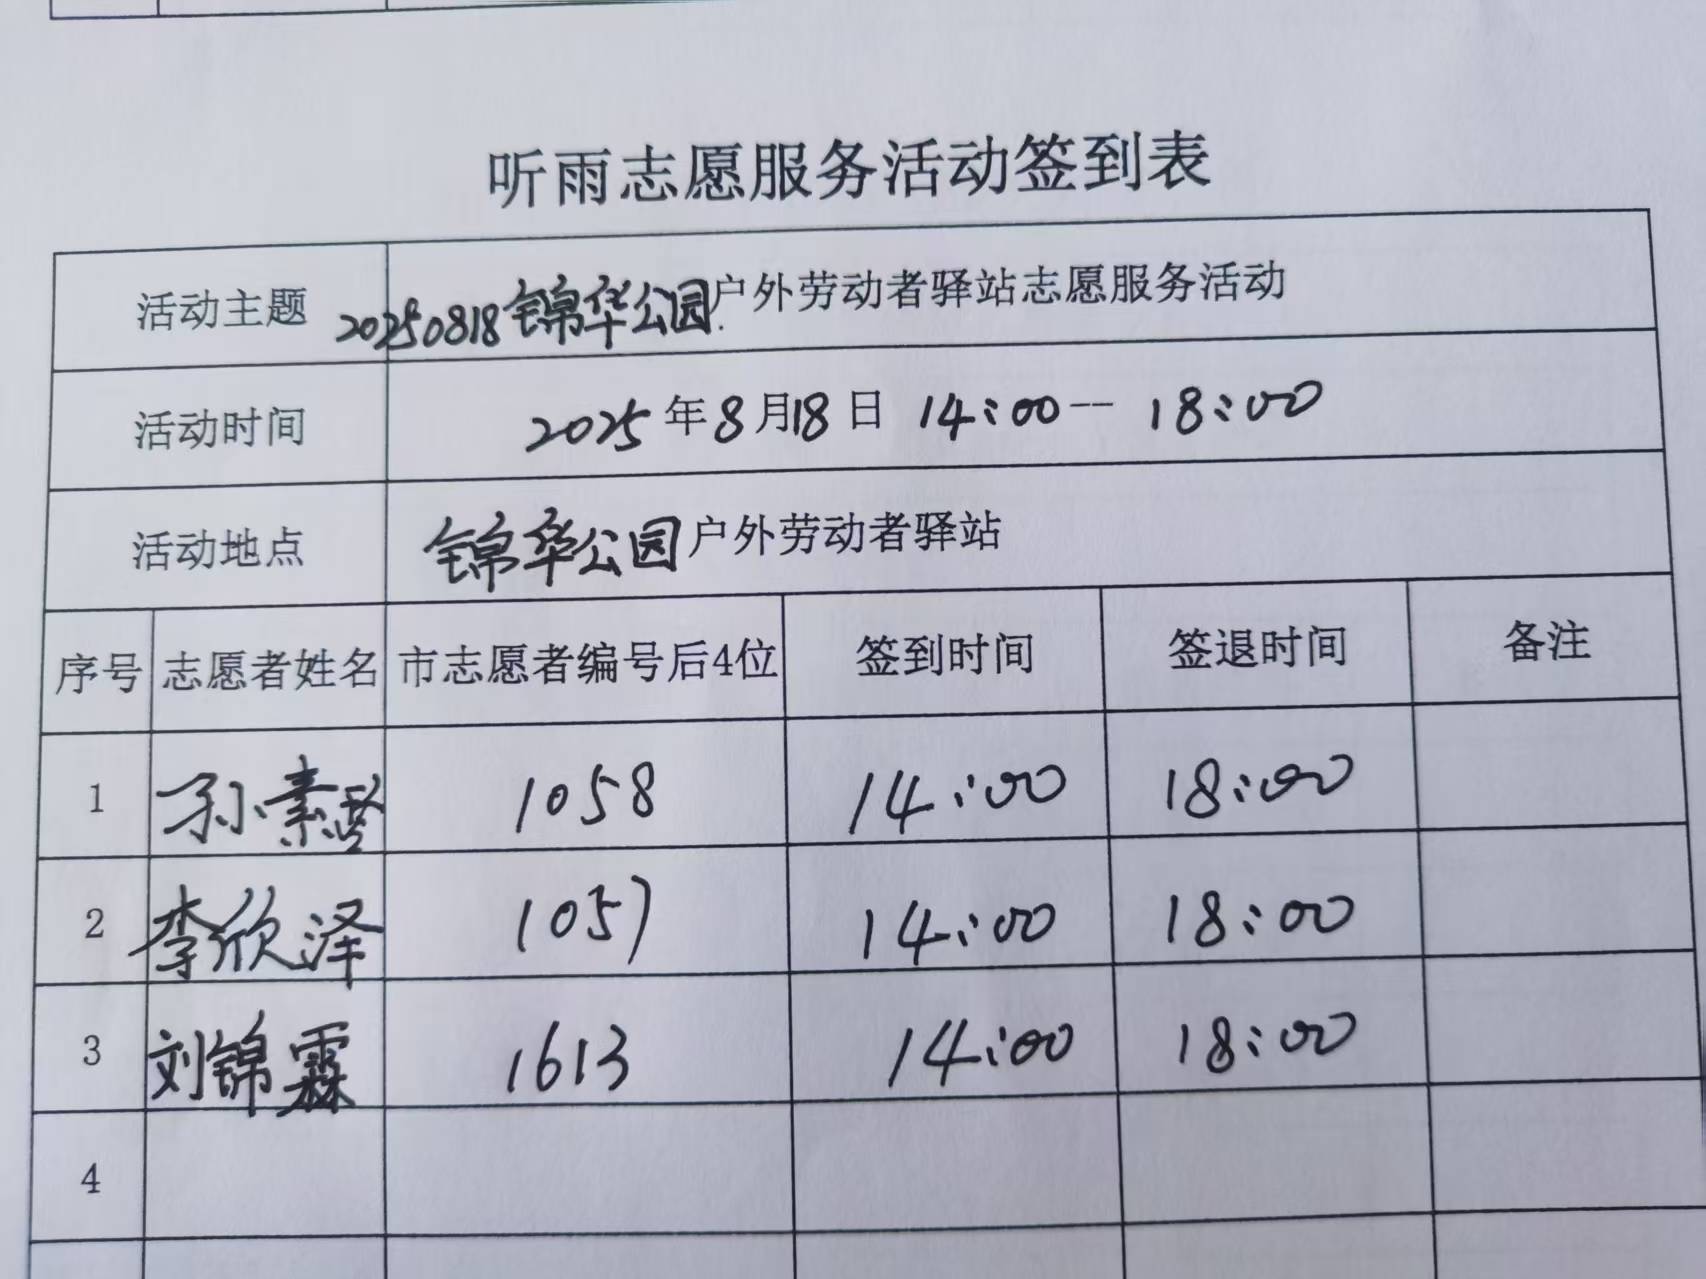 听雨志愿服务活动签到表
活动主题 20250818锦华公园户外劳动者驿站志愿服务活动
活动时间 2025年8月18日 14:00-- 18:00
活动地点 锦华公园户外劳动者驿站
序号 志愿者姓名 市志愿者编号后4位 签到时间 签退时间 备注
1 孙素 1058 14:00 18:00
2 李欣泽 1057 14:00 18:00
3 刘锦霖 1613 14:00 18:00
4